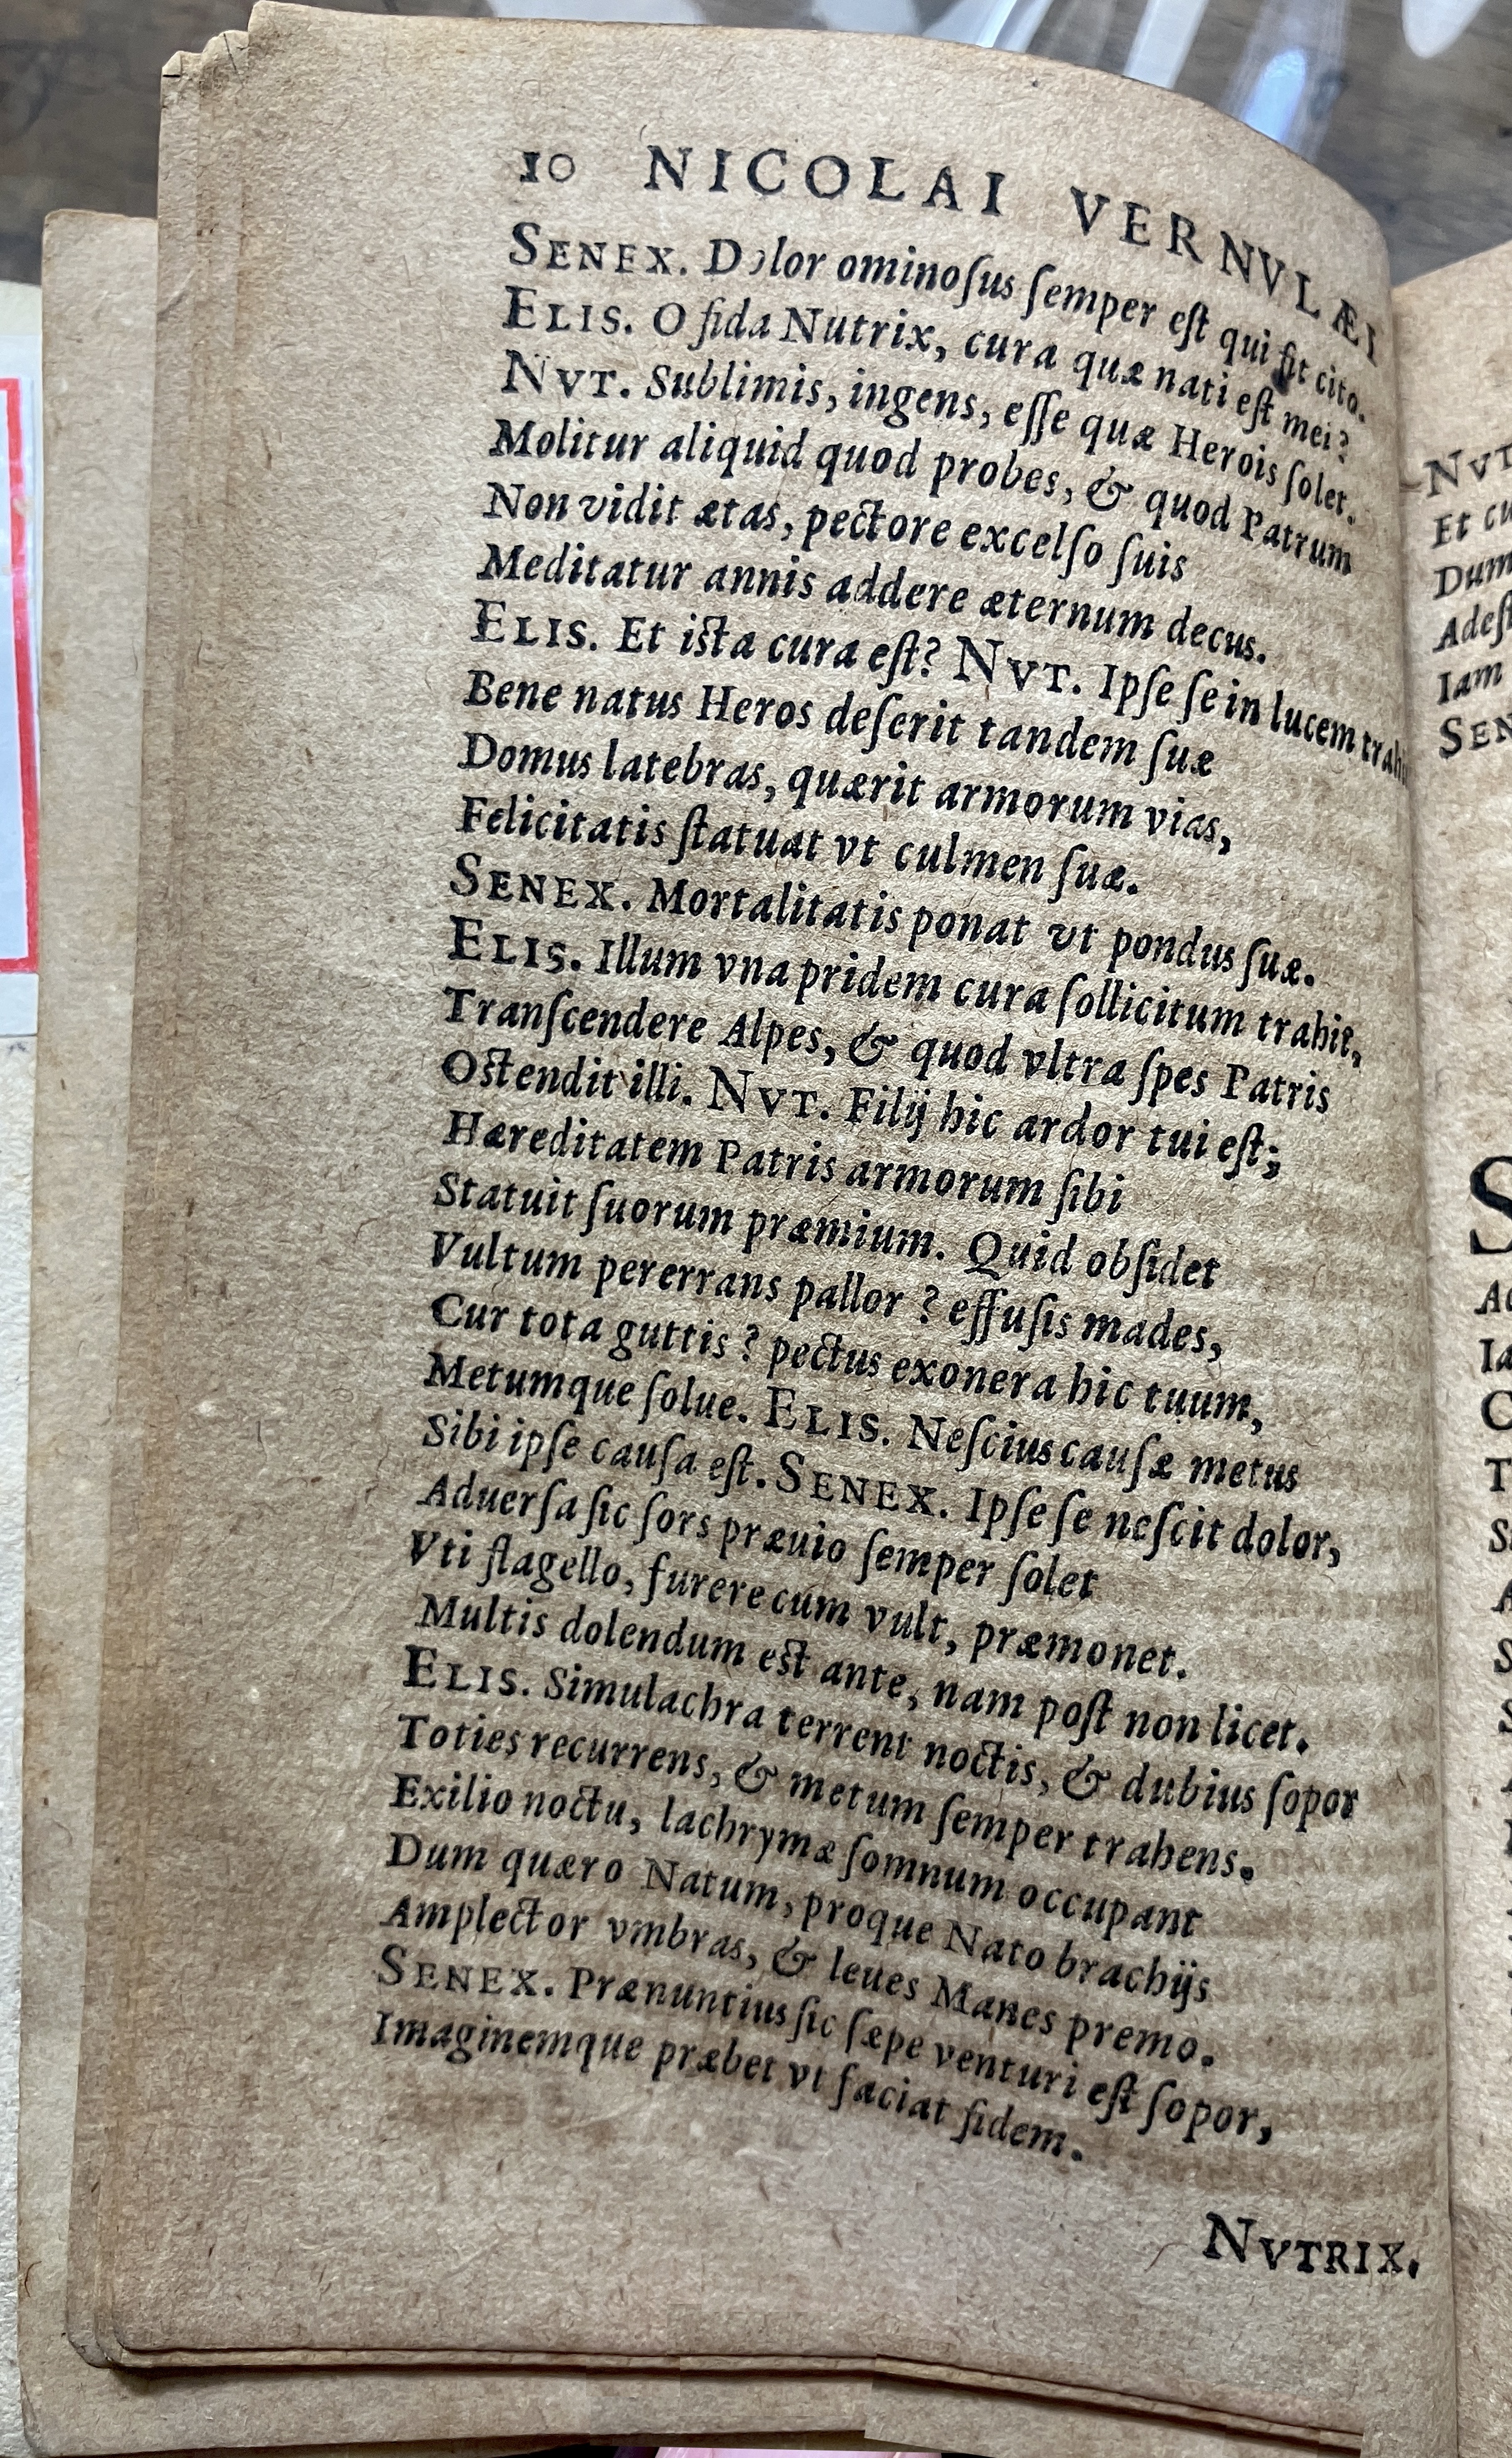 10 NICOLAI VERNVLÆI
SENEX. Dolor ominoſus ſemper eſt qui fit cito.
ELIS. O fida Nutrix, cura quæ nati eſt mei?
NVT. Sublimis, ingens, eſſe quæ Herois ſolet.
Molitur aliquid quod probes, & quod Patrum
Non vidit ætas, pectore excelſo ſuis
Meditatur annis addere æternum decus.
ELIS. Et iſta cura eſt? NVT. Ipſe ſe in lucem
Bene natus Heros deſerit tandem ſuæ
Domus latebras, quærit armorum vias,
Felicitatis ſtatuat vt culmen ſuæ.
SENEX. Mortalitatis ponat vt pondus ſuæ.
ELIS. Illum vna pridem cura ſollicitum trahit,
Tranſcendere Alpes, & quod vltra ſpes Patris
Oſtendit illi. NVT. Filij hic ardor tui eſt;
Hæreditatem Patris armorum ſibi
Statuit ſuorum præmium. Quid obſidet
Vultum pererrans pallor? effuſis mades,
Cur tota guttis? pectus exonera hic tuum,
Metumque ſolue. ELIS. Neſcius cauſæ metus
Sibi ipſe cauſa eſt. SENEX. Ipſe ſe neſcit dolor,
Aduerſa ſic ſors præuio ſemper ſolet
Vti flagello, furere cum vult, præmonet.
Multis dolendum eſt ante, nam poſt non licet.
ELIS. Simulachra terrent noctis, & dubius ſopor
Toties recurrens, & metum ſemper trahens.
Exilio noctu, lachrymæ ſomnum occupant
Dum quæro Natum, proque Nato brachijs
Amplector vmbras, & leues Manes premo.
SENEX. Prænuntius ſic ſæpe venturi eſt ſopor,
Imaginemque præbet vt faciat fidem.
NVTRIX.
Et
Iam